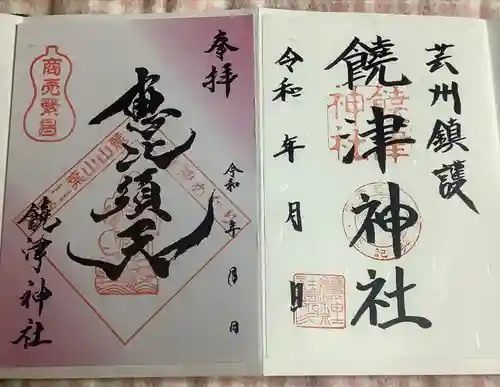 芸州鎮護
饒津神社
饒津神社
令和 年 月 日
奉拝
恵比須天
商売繁昌
令和 年 月 日
饒津神社